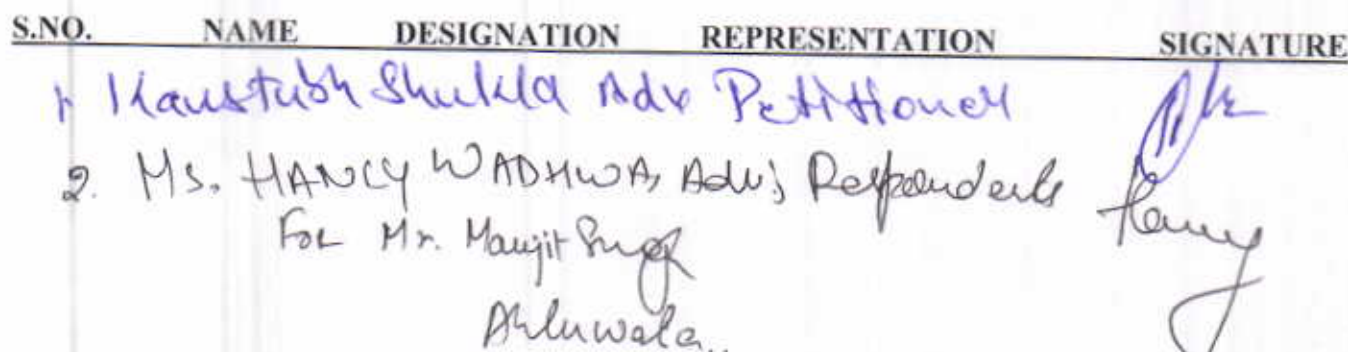 S.NO. NAME DESIGNATION REPRESENTATION SIGNATURE
1. Kaustubh Shukla Adv Petitioner
2. Ms. HANCY WADHWA, Adv; Respondents
For Mr. Manjit Singh
Ahluwalia..